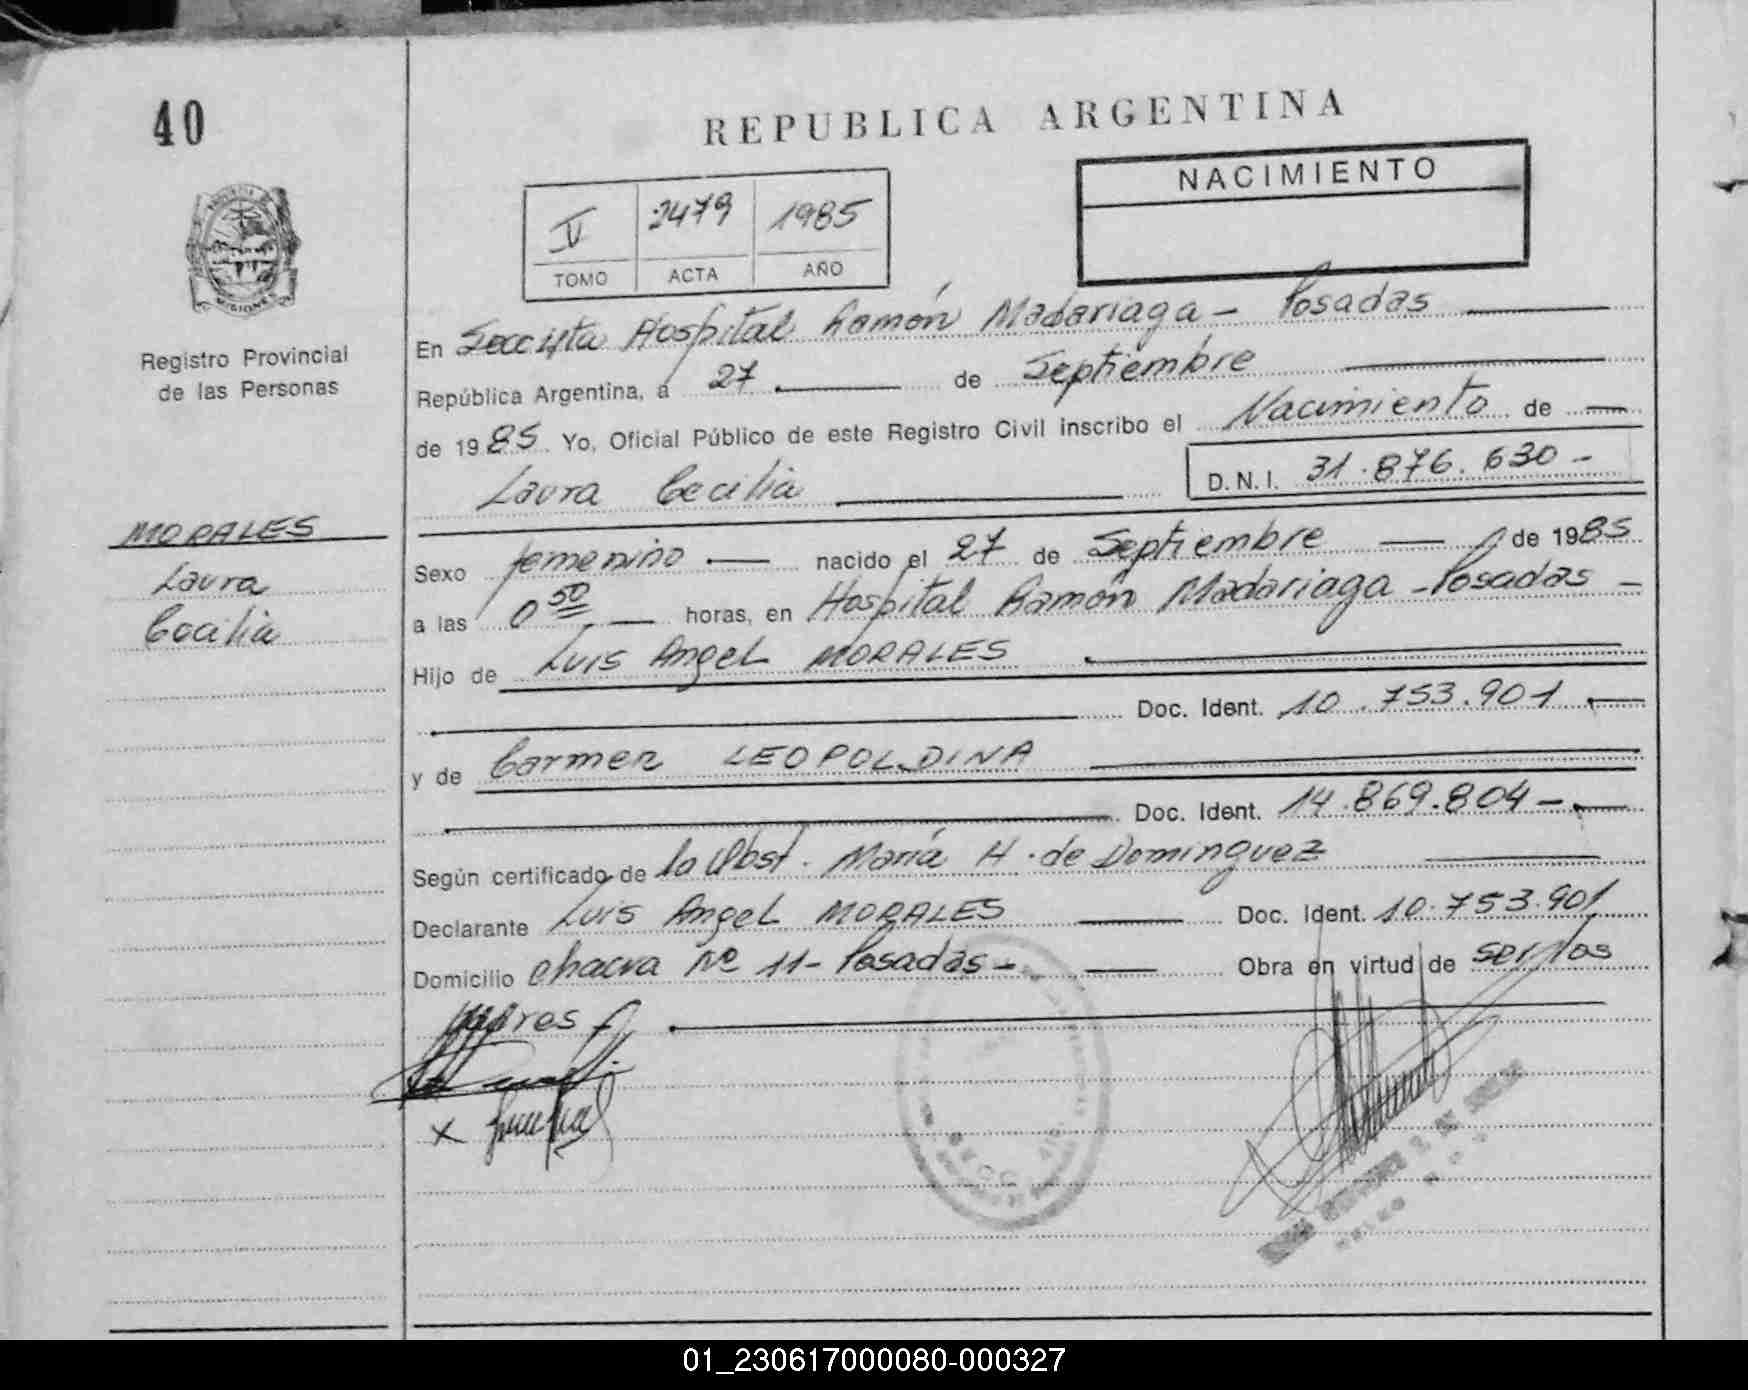 40
REPUBLICA ARGENTINA
NACIMIENTO
V 2479 1985
TOMO ACTA AÑO
PROVINCIA DE
MISIONES
Registro Provincial
de las Personas
En Secc 4ta Hospital Ramón Madariaga - Posadas
República Argentina, a 27 de Septiembre
de 1985 Yo, Oficial Público de este Registro Civil inscribo el Nacimiento de
Laura Cecilia D.N.I. 31.876.630-
MORALES
Laura
Cecilia
Sexo femenino nacido el 27 de Septiembre de 1985
a las 0 50 horas, en Hospital Ramón Madariaga - Posadas -
Hijo de Luis Angel MORALES
Doc. Ident. 10.753.901
y de Carmen LEOPOLDINA
Doc. Ident. 14.869.804-
Según certificado de la Obst. María H. de Dominguez
Declarante Luis Angel MORALES Doc. Ident. 10.753.901
Domicilio chacra Nº 11- Posadas- Obra en virtud de ser los
padres
x
01_230617000080-000327